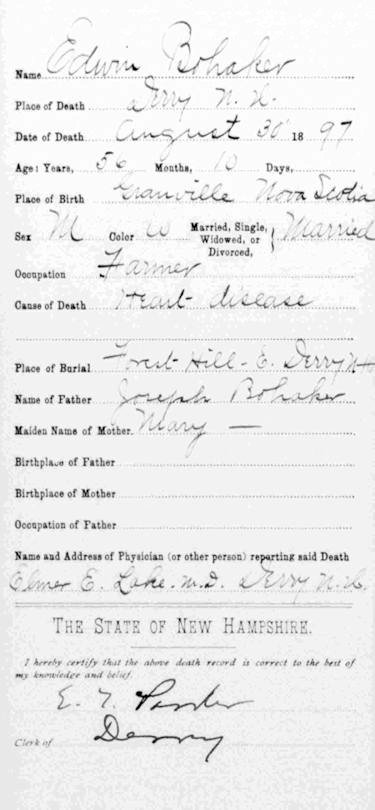 Name Edwin Bohaker
Place of Death Derry N. H.
Date of Death August 30 1897
Age: Years, 56 Months, 10 Days,
Place of Birth Granville Nova Scotia
Sex M Color W Married, Single, Widowed, or Divorced, } Married
Occupation Farmer
Cause of Death Heart disease
Place of Burial Forest Hill - E. Derry N H
Name of Father Joseph Bohaker
Maiden Name of Mother Mary —
Birthplace of Father
Birthplace of Mother
Occupation of Father
Name and Address of Physician (or other person) reporting said Death
Elmer E. Lake. M.D. Derry N.H.
THE STATE OF NEW HAMPSHIRE.
I hereby certify that the above death record is correct to the best of
my knowledge and belief.
E.
Clerk of Derry